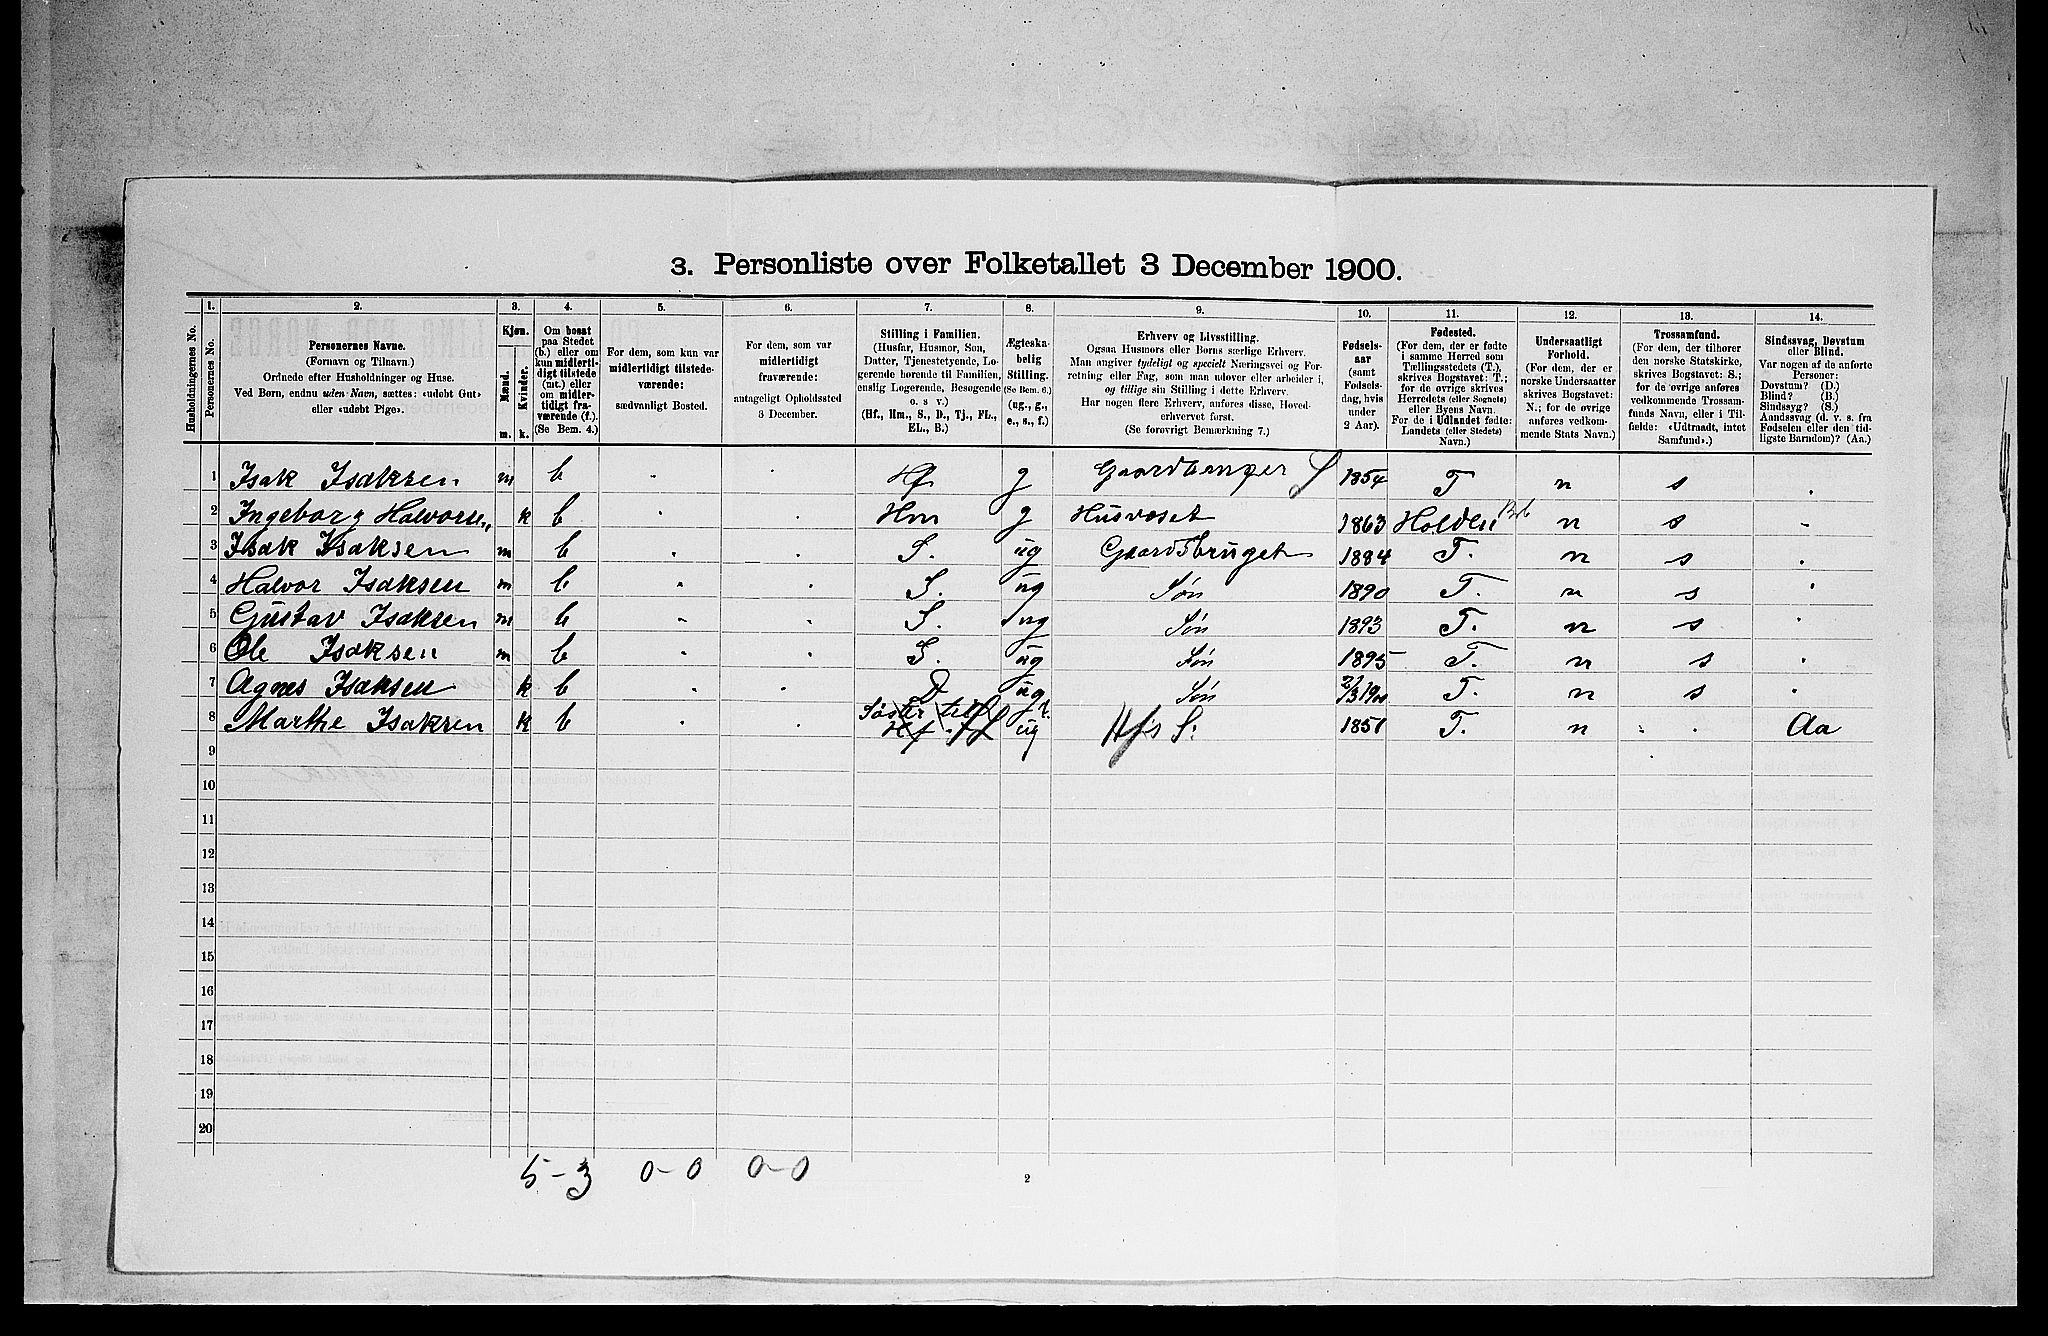 3. Personliste over Folketallet 3 December 1900.
1. 2. 3. 4. 5. 6. 7. 8. 9. 10. 11. 12. 13. 14.
Husholdningernes No.
Personernes No.
Personernes Navne.
(Fornavn og Tilnavn.)
Ordnede efter Husholdninger og Huse.
Ved Børn, endnu uden Navn, sættes: «udøbt Gut»
eller «udøbt Pige».
Kjøn.
Mænd.
m.
Kvinder.
k.
Om bosat
paa Stedet
(b.) eller om
kun midlerti-
digt tilstede
(mt.) eller
om midler-
tidigt fra-
værende (f.).
(Se Bem. 4.)
For dem, som kun var
midlertidigt tilstede-
værende:
sædvanligt Bosted.
For dem, som var
midlertidigt
fraværende:
antageligt Opholdssted
3 December.
Stilling i Familien.
(Husfar, Husmor, Søn,
Datter, Tjenestetyende, Lo-
gerende hørende til Familien,
enslig Logerende, Besøgende
o. s v.)
(Hf., Hm., S., D., Tj., FL.,
EL., B.)
Ægteska-
belig
Stilling.
(Se Bem. 6.)
(ug., g.,
e., s., f.)
Erhverv og Livsstilling.
Ogsaa Husmors eller Børns særlige Erhverv.
Man angiver tydeligt og specielt Næringsvei og For-
retning eller Fag, som man udøver eller arbeider i,
og tillige sin Stilling i dette Erhverv.
Har nogen flere Erhverv, anføres disse, Hoved-
erhvervet først.
(Se forøvrigt Bemærkning 7.)
Fødsels-
aar
(samt
Fødsels-
dag, hvis
under
2 Aar).
Fødested.
(For dem, der er fødte
i samme Herred som
Tællingsstedets (T.),
skrives Bogstavet: T.;
for de øvrige skrives
Herredets (eller Sognets)
eller Byens Navn.
For de i Udlandet fødte:
Landets (eller Stedets)
Navn.)
Undersaatligt
Forhold.
(For dem, der er
norske Undersaatter
skrives Bogstavet:
N.; for de øvrige
anføres vedkom-
mende Stats Navn.)
Trossamfund.
(For dem, der tilhører
den norske Statskirke,
skrives Bogstavet: S.;
for de øvrige anføres
vedkommende Trossam-
funds Navn, eller i Til-
fælde: «Udtraadt, intet
Samfund».)
Sindssvag, Døvstum
eller Blind.
Var nogen af de anførte
Personer:
Døvstum? (D.)
Blind? (B.)
Sindssyg? (S.)
Aandssvag (d. v. s. fra
Fødselen eller den tid-
ligste Barndom)? (Aa.)
1 Isak Isaksen m b " . Hf g S 1854 T n s .
2 Ingeborg Halvorsen k b " . Hm g Husvæset 1863 Holden n s -
3 Isak Isaksen m b " . S. ug Gaardsbruget 1884 T. n s .
4 Halvor Isaksen m b " . S. ug Søn 1890 T. n s .
5 Gustav Isaksen m b " . S. ug Søn 1893 T. n s .
6 Ole Isaksen m b " . S. ug Søn 1895 T. n s .
7 Agnes Isaksen k b " . D ug Søn T. n s .
8 Marthe Isaksen k b " . Søster til Hf. fl ug Hf's S. 1851 T. n . Aa
9
10
11
12
13
14
15
16
17
18
19
20
5-3 0-0 0-0
2